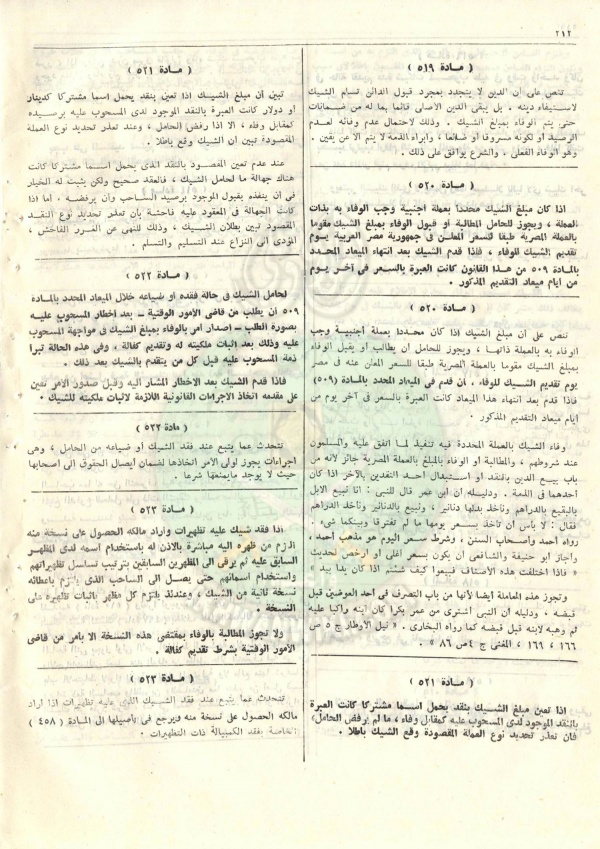 ٢١٢
( مادة ٥١٩ )
تنص على أن الدين لا يتجدد بمجرد قبول الدائن تسلم الشيك
لاستيفاء دينه . بل يبقى الدين الأصلى قائما بما له من ضمانات
حتى يتم الوفاء بمبلغ الشيك . وذلك لاحتمال عدم وفائه لعدم
الرصيد أو لكونه مسروقا أو ضائعا ، وابراء الذمة لا يتم الا عن يقين .
وهو الوفاء الفعلى ، والشرع يوافق على ذلك .
( مادة ٥٢٠ )
اذا كان مبلغ الشيك محددا بعملة أجنبية وجب الوفاء به بذات
العملة ، ويجوز للحامل المطالبة أو قبول الوفاء بمبلغ الشيك مقوما
بالعملة المصرية طبقا للسعر المعلن فى جمهورية مصر العربية يوم
تقديم الشيك للوفاء ، فاذا قدم الشيك بعد انتهاء الميعاد المحدد
بالمادة ٥٠٩ من هذا القانون كانت العبرة بالسعر فى آخر يوم
من أيام ميعاد التقديم المذكور .
( مادة ٥٢٠ )
تنص على أن مبلغ الشيك اذا كان محددا بعملة أجنبية وجب
الوفاء به بالعملة ذاتها ، ويجوز للحامل أن يطالب أو يقبل الوفاء
بمبلغ الشيك مقوما بالعملة المصرية طبقا للسعر المعلن عنه فى مصر
يوم تقديم الشيك للوفاء ، أن قدم فى الميعاد المحدد بالمادة (٥٠٩)
فاذا قدم بعد انتهاء هذا الميعاد كانت العبرة بالسعر فى آخر يوم من
أيام ميعاد التقديم المذكور .
وفاء الشيك بالعملة المحددة فيه تنفيذ لما اتفق عليه والمسلمون
عند شروطهم ، والمطالبة أو الوفاء بالمبلغ بالعملة المصرية جائز لأنه من
باب بيع الدين بالنقد أو استبدال أحد النقدين بالآخر اذا كان
أحدهما فى الذمة . ودليله أن ابن عمر قال للنبى : انا نبيع الابل
بالبقيع بالدراهم ونأخذ بدلها دنانير ، ونبيع بالدنانير ونأخذ الدراهم
فقال : لا بأس أن تأخذ بسعر يومها ما لم تفترقا وبينكما شىء .
رواه أحمد وأصحاب السنن ، وشرط سعر اليوم هو مذهب أحمد ،
وأجاز أبو حنيفة والشافعى أن يكون بسعر أغلى أو أرخص لحديث
« فاذا اختلفت هذه الأصناف فبيعوا كيف شئتم اذا كان يدا بيد »
وتجوز هذه المعاملة أيضا لأنها من باب التصرف فى أحد العوضين قبل
قبضه . ودليله أن النبى اشترى من عمر بكرا كان ابنه راكبا عليه
ثم وهبه لابنه قبل قبضه كما رواه البخارى . « نيل الأوطار ج ٥ ص
١٦٦ ، ١٦٩ ، المغنى ج ٤ ص ٨٦ » .
( مادة ٥٢١ )
اذا تعين مبلغ الشيك بنقد يحمل اسما مشتركا كانت العبرة
بالنقد الموجود لدى المسحوب عليه كمقابل وفاء ، ما لم يرفض الحامل)
فان تعذر تحديد نوع العملة المقصودة وقع الشيك باطلا .
( مادة ٥٢١ )
تبين أن مبلغ الشيك اذا تعين بنقد يحمل اسما مشتركا كدينار
أو دولار كانت العبرة بالنقد الموجود لدى المسحوب عليه برصيده
كمقابل وفاء ، الا اذا رفض الحامل ، وعند تعذر تحديد نوع العملة
المقصودة تبين أن الشيك وقع باطلا .
عند عدم تعين المقصود بالنقد الذى يحمل اسما مشتركا كانت
هناك جهالة ما لحامل الشيك ، فالعقد صحيح ولكن يثبت له الخيار
فى أن ينفذه بقبول الموجود برصيد الساحب وأن يرفضه ، أما اذا
كانت الجهالة فى المعقود عليه فاحشة بأن تعذر تحديد نوع النقد
المقصود تبين بطلان الشيك ، وذلك للنهى عن الغرر الفاحش ،
المؤدى الى النزاع عند التسليم والتسلم .
( مادة ٥٢٢ )
لحامل الشيك فى حالة فقده أو ضياعه خلال الميعاد المحدد بالمادة
٥٠٩ أن يطلب من قاضى الأمور الوقتية – بعد اخطار المسحوب عليه
بصورة الطلب – اصدار أمر بالوفاء بمبلغ الشيك فى مواجهة المسحوب
عليه وذلك بعد اثبات ملكيته له وتقديم كفالة ، وفى هذه الحالة تبرأ
ذمة المسحوب عليه قبل كل من يتقدم بالشيك بعد ذلك .
فاذا قدم الشيك بعد الاخطار المشار اليه وقبل صدور الأمر تعين
على مقدمه اتخاذ الاجراءات القانونية اللازمة لاثبات ملكيته للشيك .
( مادة ٥٢٢ )
تتحدث عما يتبع عند فقد الشيك أو ضياعه من الحامل ، وهى
اجراءات يجوز لولى الأمر اتخاذها لضمان ايصال الحقوق الى أصحابها
حيث لا يوجد ما يمنعها شرعا .
( مادة ٥٢٣ )
اذا فقد شيك عليه تظهيرات وأراد مالكه الحصول على نسخة منه
الزم من ظهره اليه مباشرة بالاذن له باستخدام اسمه لدى المظهر
السابق عليه ثم يرقى الى المظهرين السابقين بترتيب تسلسل تظهيراتهم
واستخدام أسمائهم حتى يصل الى الساحب الذى يلتزم باعطائه
نسخة ثانية من الشيك ، وعندئذ يلتزم كل مظهر باثبات تظهيره على
النسخة .
ولا تجوز المطالبة بالوفاء بمقتضى هذه النسخة الا بأمر من قاضى
الأمور الوقتية بشرط تقديم كفالة .
( مادة ٥٢٣ )
تتحدث عما يتبع عند فقد الشيك الذى عليه تظهيرات اذا أراد
مالكه الحصول على نسخة منه فيرجع فى تأصيلها الى المادة ( ٤٥٨ )
الخاصة بفقد الكمبيالة ذات التظهيرات .